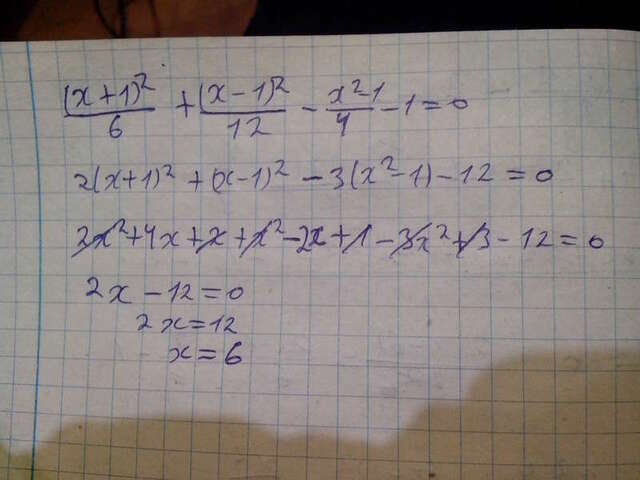 (x+1)²/6 + (x-1)²/12 - x²-1/4 - 1 = 0
2(x+1)² + (x-1)² - 3(x²-1) - 12 = 0
2x² + 4x + 2 + x² - 2x + 1 - 3x² + 3 - 12 = 0
2x - 12 = 0
2x = 12
x = 6